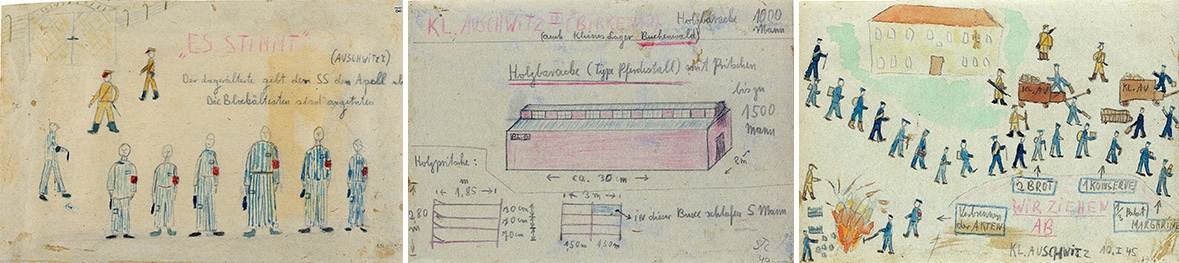 "ES STIMMT"
(AUSCHWITZ)
Der Lagerälteste gibt dem SS den Apell
Die Blockältesten sind angetreten
KL. AUSCHWITZ II (BIRKENAU)
Holzbaracke 1000
Mann
(auch kleines Lager Buchenwald)
Holzbaracke (Type Pferdestall) mit Pritschen
bis zu
1500
Mann
8m
ca. 30 m
Holzpritsche:
m
1,85
3 m
2,80
m
70cm
70cm
70cm
150cm 150cm
in dieser Buxe schlafen 5 Mann
KL. AU
KL. AU
2 BROT
1 KONSERVE
WIR ZIEHEN
AB
Verbrennen
der AKTEN
MARGARINE
KL. AUSCHWITZ